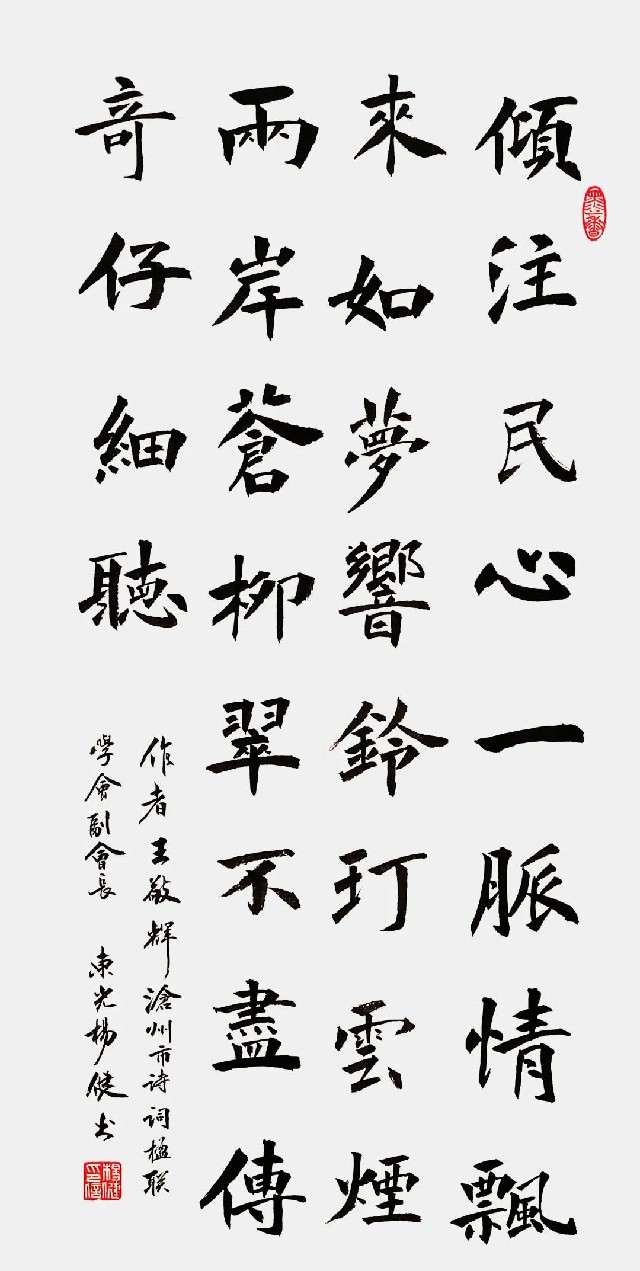 傾注民心一脈情飄
來如夢響鈴玎雲煙
兩岸蒼柳翠不盡傳
奇仔細聽
作者王敬輝滄州市诗词楹联
學會副會長 東光楊健书
墨香
楊健印信